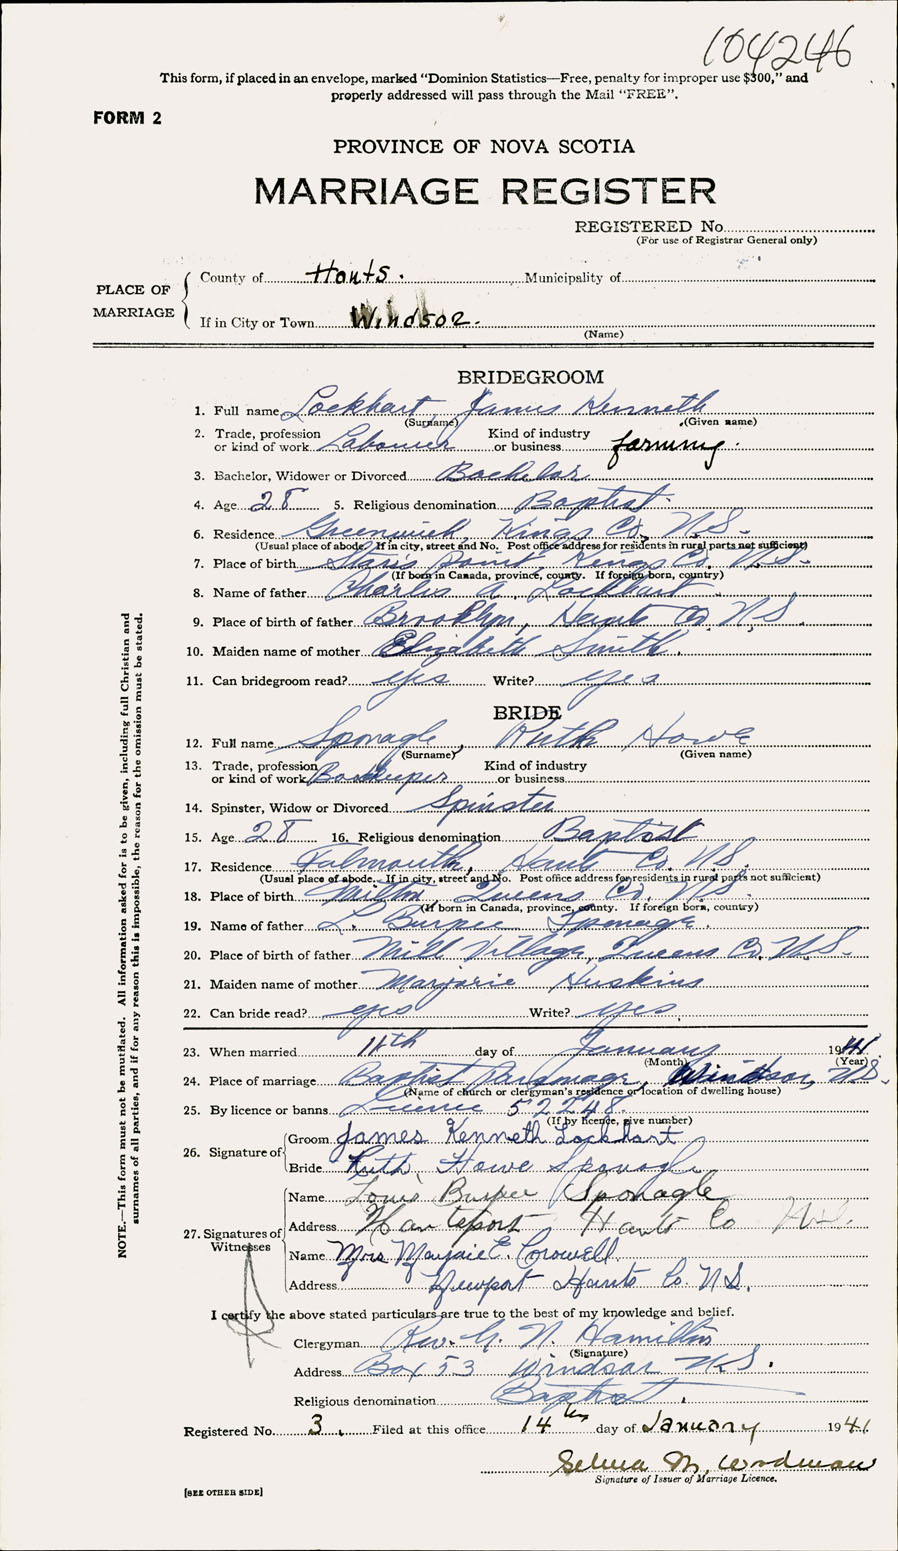 104246
This form, if placed in an envelope, marked "Dominion Statistics—Free, penalty for improper use $300," and
properly addressed will pass through the Mail "FREE".
FORM 2
PROVINCE OF NOVA SCOTIA
MARRIAGE REGISTER
REGISTERED No.
(For use of Registrar General only)
PLACE OF MARRIAGE
County of Hants. Municipality of
If in City or Town Windsor.
(Name)
BRIDEGROOM
1. Full name Lockhart, James Kenneth
(Surname) (Given name)
2. Trade, profession or kind of work Labourer Kind of industry or business farming.
3. Bachelor, Widower or Divorced Bachelor
4. Age 28 5. Religious denomination Baptist
6. Residence Greenwich, Kings Co. N.S.
(Usual place of abode. If in city, street and No. Post office address for residents in rural parts not sufficient)
7. Place of birth Starr's Point, Kings Co. N.S.
(If born in Canada, province, county. If foreign born, country)
8. Name of father Charles A. Lockhart
9. Place of birth of father Brooklyn, Hants Co. N.S.
10. Maiden name of mother Elizabeth Smith.
11. Can bridegroom read? yes Write? yes
BRIDE
12. Full name Sponagle Ruth Howe
(Surname) (Given name)
13. Trade, profession or kind of work Kind of industry or business
14. Spinster, Widow or Divorced Spinster
15. Age 28 16. Religious denomination Baptist
17. Residence Falmouth, Hants Co. N.S.
(Usual place of abode. If in city, street and No. Post office address for residents in rural parts not sufficient)
18. Place of birth Milton, Queens Co. N.S.
(If born in Canada, province, county. If foreign born, country)
19. Name of father L. Burpee Sponagle.
20. Place of birth of father Mill Village, Queens Co. N.S.
21. Maiden name of mother Marjorie Huskins
22. Can bride read? yes Write? yes
23. When married 11th day of January 1941
(Month) (Year)
24. Place of marriage Baptist Parsonage, Windsor, N.S.
(Name of church or clergyman's residence or location of dwelling house)
25. By licence or banns Licence 52248.
(If by licence, give number)
26. Signature of
Groom James Kenneth Lockhart
Bride Ruth Howe Sponagle
27. Signatures of Witnesses
Name Louis Burpee Sponagle
Address Hantsport Hants Co N.S.
Name Mrs Marjorie E. Crowell
Address Newport Hants Co. N.S.
I certify the above stated particulars are true to the best of my knowledge and belief.
Clergyman Rev. G. N. Hamilton
(Signature)
Address Box 53 Windsor N.S.
Religious denomination Baptist.
Registered No. 3. Filed at this office 14th day of January 1941
Selma M. Woodman
Signature of Issuer of Marriage Licence.
[SEE OTHER SIDE]
NOTE.—This form must not be mutilated. All information asked for is to be given, including full Christian and
surnames of all parties, and if for any reason this is impossible, the reason for the omission must be stated.